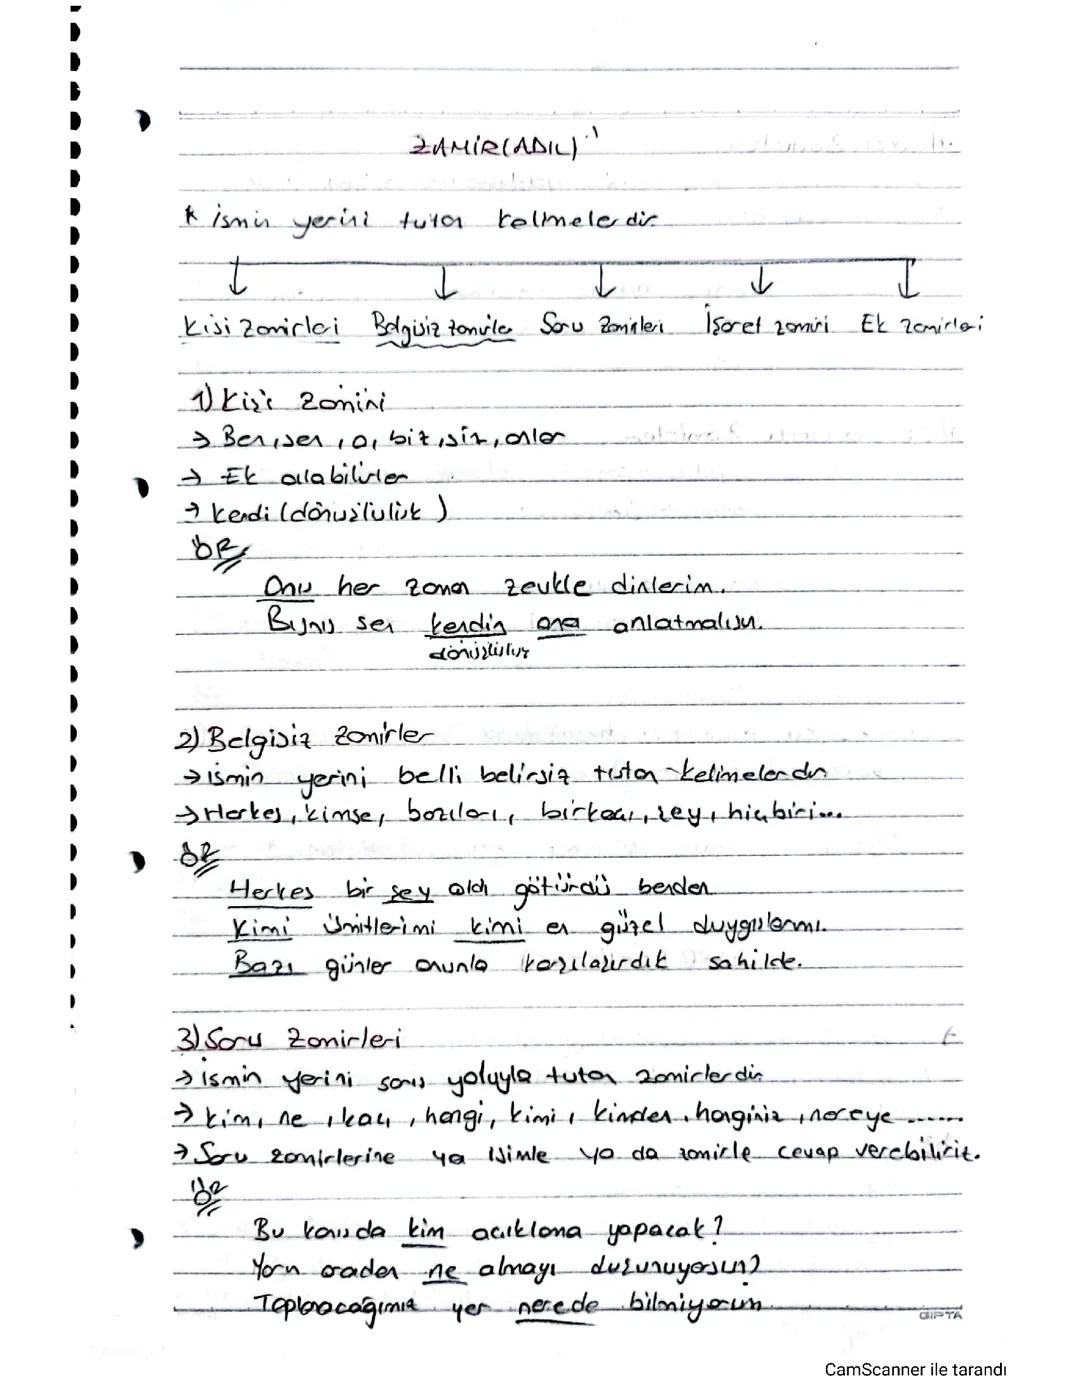 ZAMİR(ADIL)
* ismin yerini tutan kelimelerdir.
Kişi Zamirleri Belgisiz zamirler Soru Zamirleri İşaret zamiri Ek zamirleri
1) Kişi Zamiri
→ Ben, sen, o, biz, siz, onlar
→ Ek alabilirler
→ Kendi (dönüşlülük)
ÖR
Onu her zaman zevkle dinlerim.
Bunu sen kendin ona anlatmalısın.
dönüşlülük
2) Belgisiz Zamirler
→ ismin yerini belli belirsiz tutan kelimelerdir
→ Herkes, kimse, bazıları, birkaçı, şey, hiçbiri...
ÖR
Herkes bir şey aldı götürdü benden
Kimi ümitlerimi kimi en güzel duygularımı.
Bazı günler onunla karşılaşırdık sahilde.
3) Soru Zamirleri
→ ismin yerini soru yoluyla tutan zamirlerdir
→ kim, ne, kaç, hangi, kimi, kimden, hanginiz, nereye ......
→ Soru zamirlerine ya isimle ya da zamirle cevap verebiliriz.
ÖR
Bu konuda kim açıklama yapacak?
Yarın oradan ne almayı düşünüyorsun?
Toplanacağımız yer nerede bilmiyorum
GIPTA
CamScanner ile tarandı